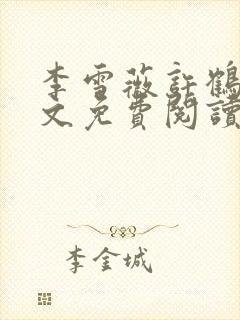 李雪薇許鶴
文免費閱讀
李金城